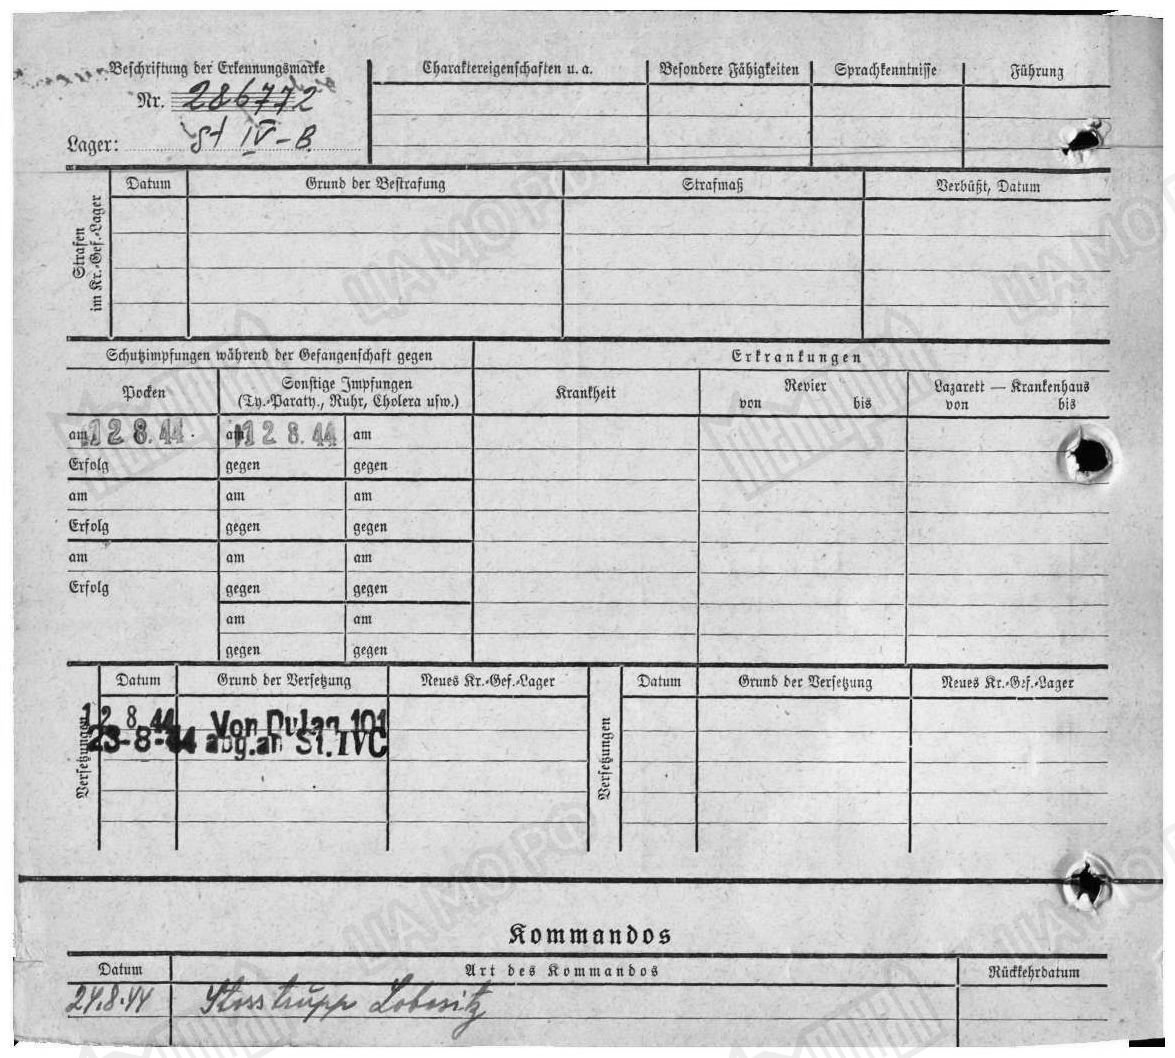 Beschriftung der Erkennungsmarke
Nr. 286772
Lager: St IV-B.
Charaktereigenschaften u. a.
Besondere Fähigkeiten
Sprachkenntnisse
Führung
Strafen
im Kr.-Gef.-Lager
Datum
Grund der Bestrafung
Strafmaß
Verbüßt, Datum
Schutzimpfungen während der Gefangenschaft gegen
Erkrankungen
Pocken
Sonstige Impfungen
(Ty.-Paraty., Ruhr, Cholera usw.)
Krankheit
Revier
von bis
Lazarett — Krankenhaus
von bis
am 12 8. 44 am 12 8. 44 am
Erfolg gegen gegen
am am am
Erfolg gegen gegen
am am am
Erfolg gegen gegen
am am
gegen gegen
Versetzungen
Datum Grund der Versetzung Neues Kr.-Gef.-Lager
12 8. 44 Von Dulag 101
23-8-44 abg.an St. IVC
Versetzungen
Datum Grund der Versetzung Neues Kr.-Gef.-Lager
Kommandos
Datum Art des Kommandos Rückkehrdatum
24.8.44 Stosstrupp Lobositz
ЦАМО РФ
ЦАМО РФ
ЦАМО РФ
ЦАМО РФ